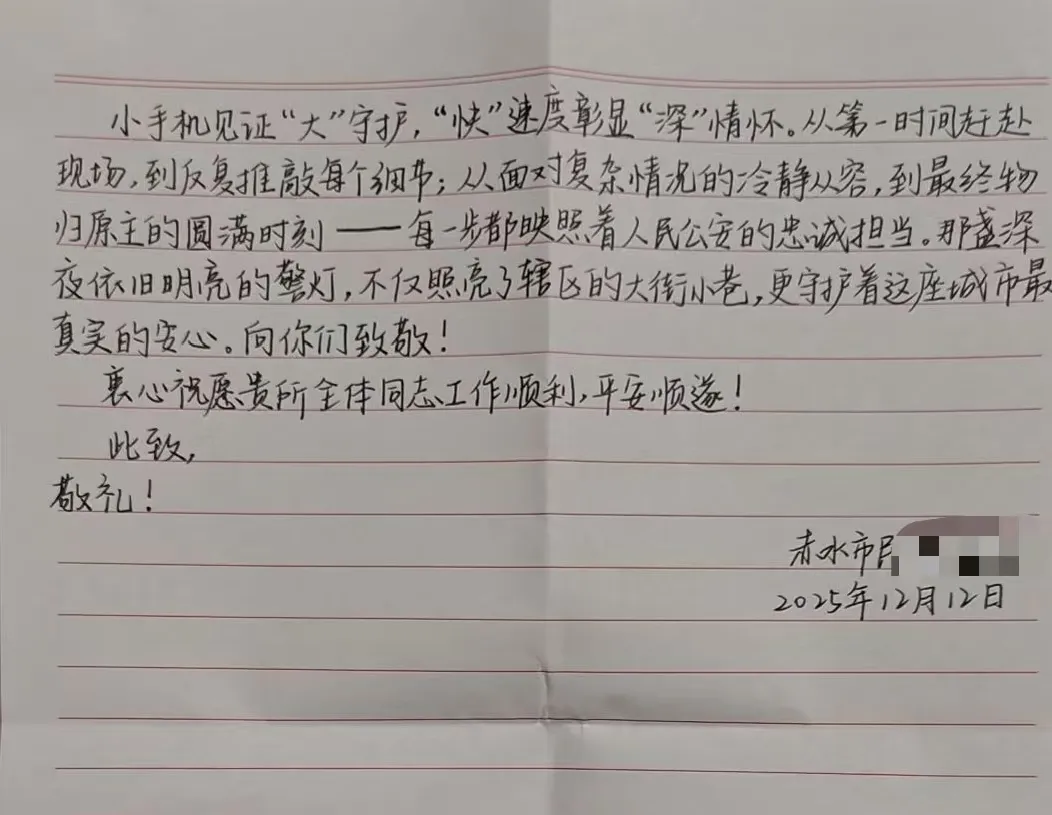 小手机见证“大”守护，“快”速度彰显“深”情怀。从第一时间赶赴
现场，到反复推敲每个细节；从面对复杂情况的冷静从容，到最终物
归原主的圆满时刻——每一步都映照着人民公安的忠诚担当。那盏深
夜依旧明亮的警灯，不仅照亮了辖区的大街小巷，更守护着这座城市最
真实的安心。向你们致敬！
衷心祝愿贵所全体同志工作顺利，平安顺遂！
此致，
敬礼！
赤水市
2025年12月12日